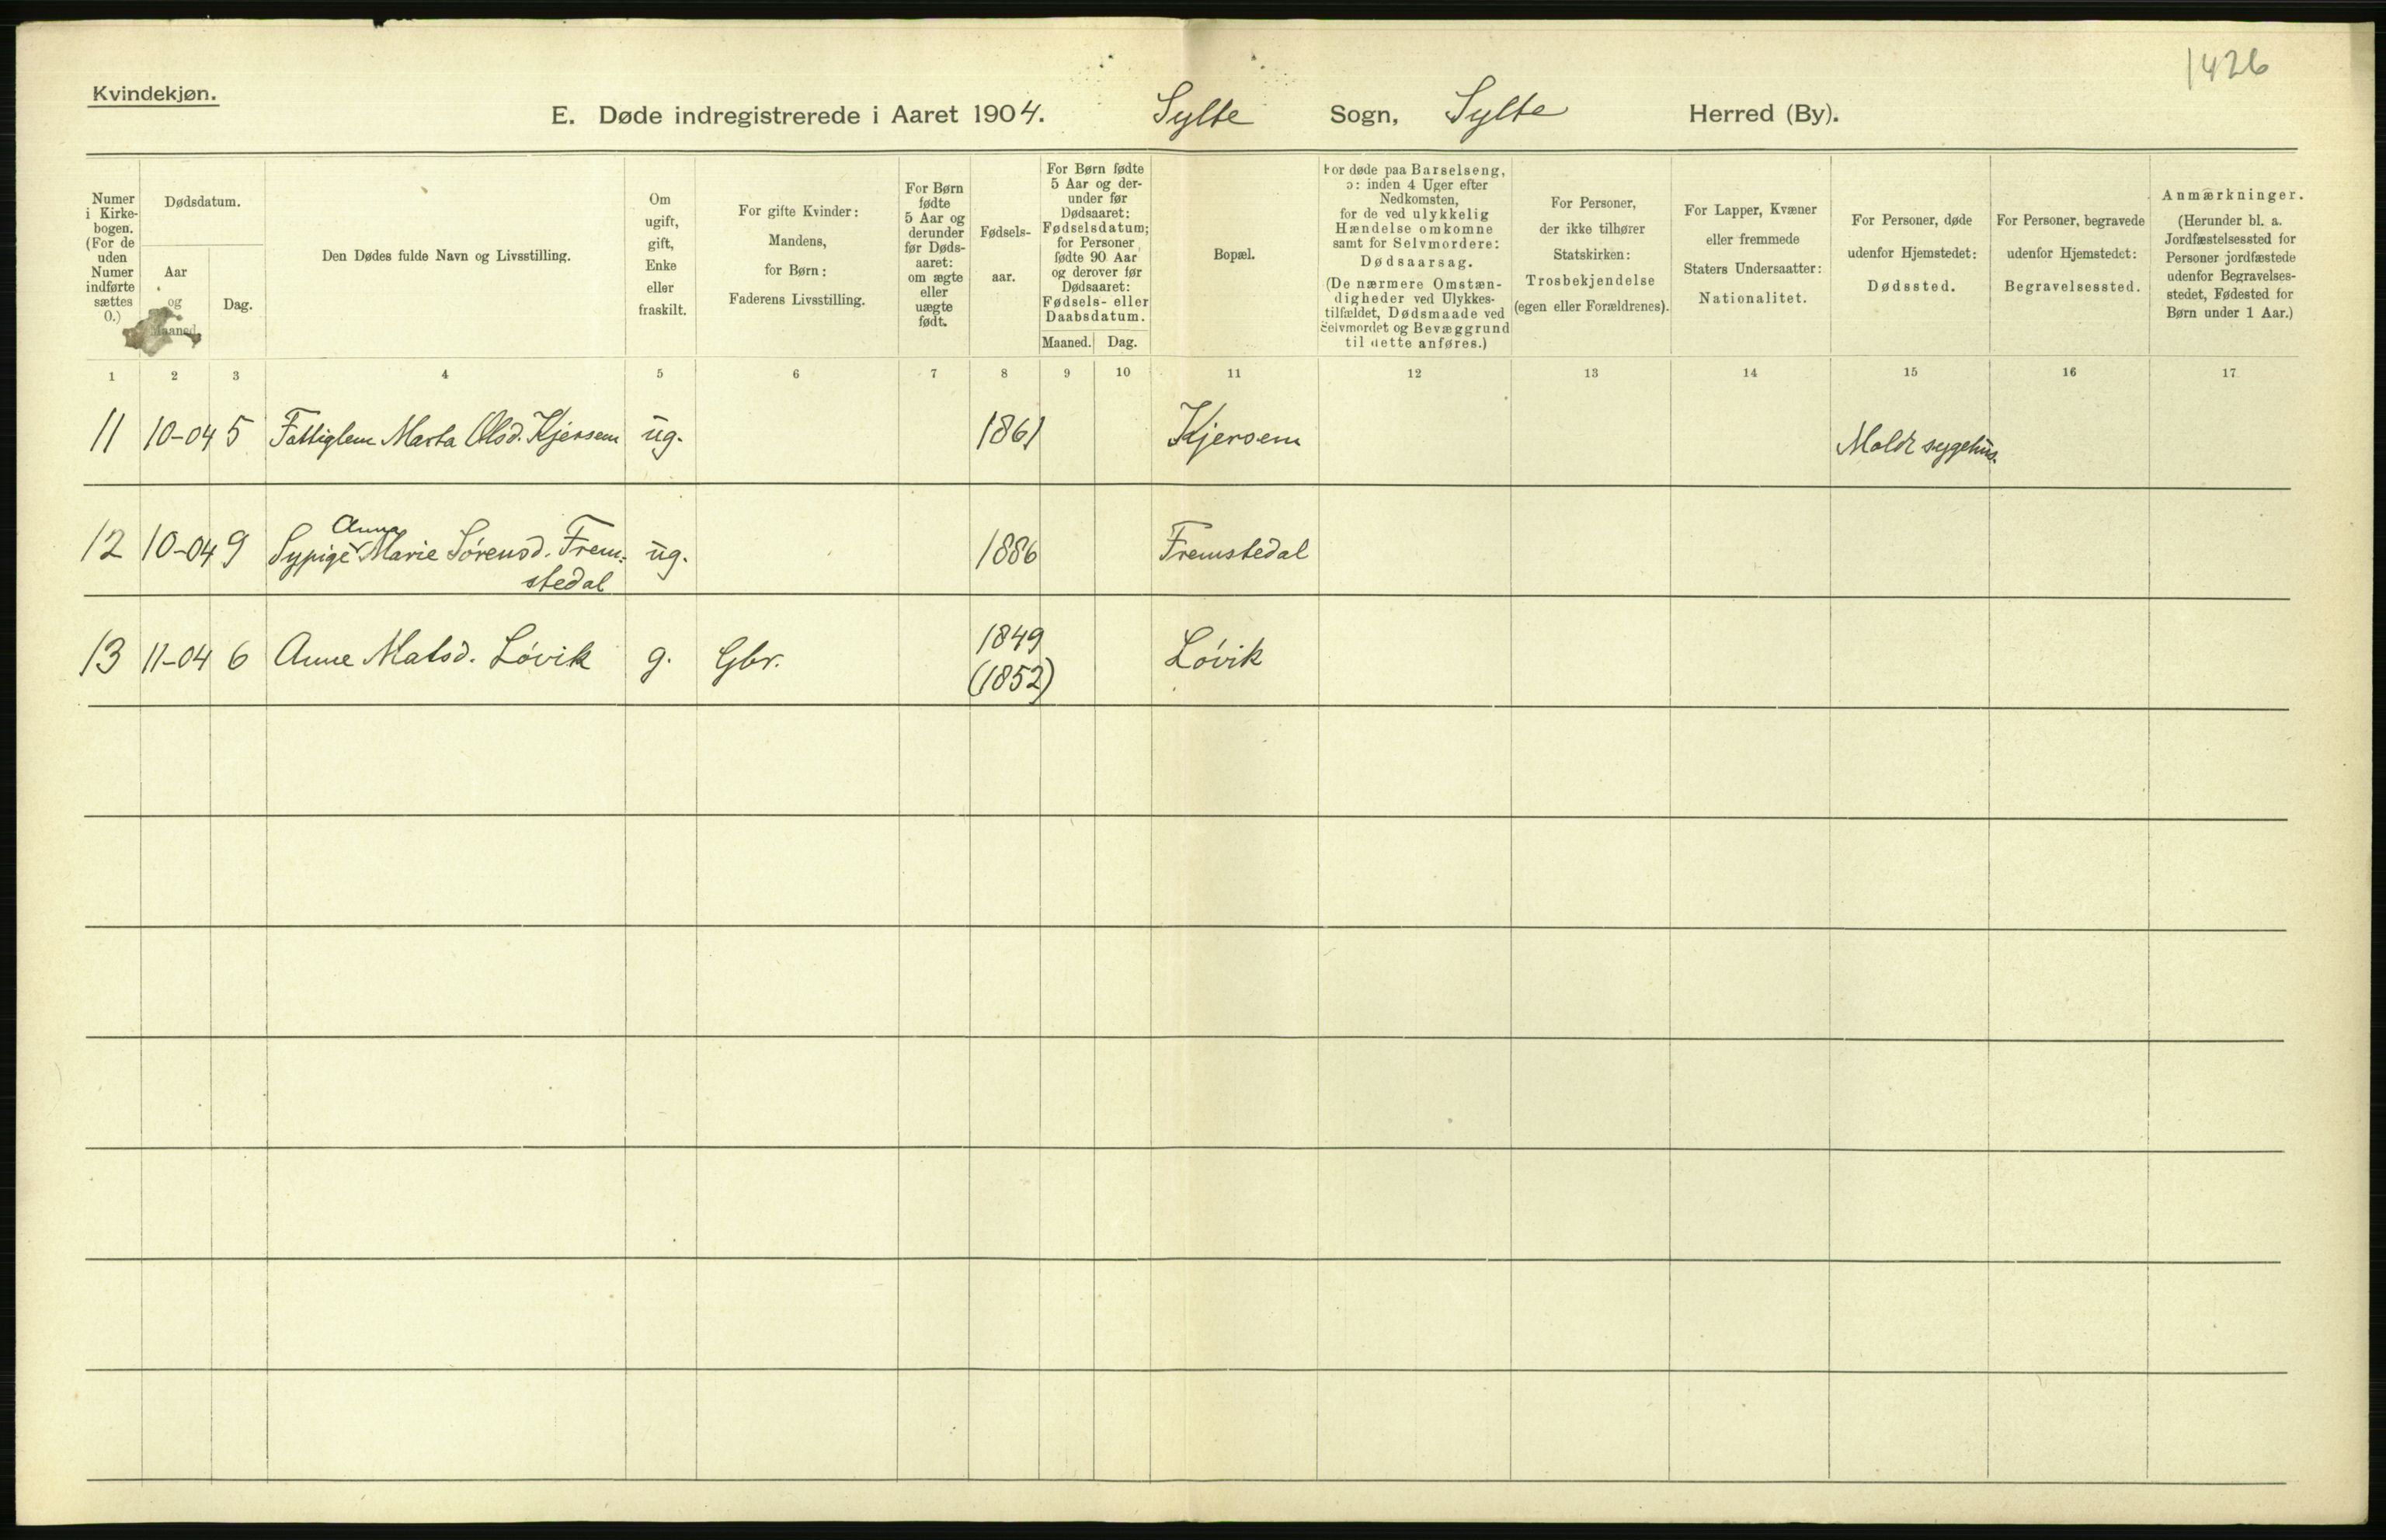 1426
Kvindekjøn.
E. Døde indregistrerede i Aaret 1904. Sylte Sogn, Sylte Herred (By).
Numer
i Kirke-
bogen.
(For de
uden
Numer
indførte
sættes
0.)
Dødsdatum.
Aar
og
Maaned.
Dag.
Den Dødes fulde Navn og Livsstilling.
Om
ugift,
gift,
Enke
eller
fraskilt.
For gifte Kvinder:
Mandens,
for Børn:
Faderens Livsstilling.
For Børn
fødte
5 Aar og
derunder
før Døds-
aaret:
om ægte
eller
uægte
født.
Fødsels-
aar.
For Børn fødte
5 Aar og der-
under før
Dødsaaret:
Fødselsdatum;
for Personer
fødte 90 Aar
og derover før
Dødsaaret:
Fødsels- eller
Daabsdatum.
Maaned. Dag.
Bopæl.
For døde paa Barselseng,
ɔ: inden 4 Uger efter
Nedkomsten,
for de ved ulykkelig
Hændelse omkomne
samt for Selvmordere:
Dødsaarsag.
(De nærmere Omstæn-
digheder ved Ulykkes-
tilfældet, Dødsmaade ved
Selvmordet og Bevæggrund
til dette anføres.)
For Personer,
der ikke tilhører
Statskirken:
Trosbekjendelse
(egen eller Forældrenes).
For Lapper, Kvæner
eller fremmede
Staters Undersaatter:
Nationalitet.
For Personer, døde
udenfor Hjemstedet:
Dødssted.
For Personer, begravede
udenfor Hjemstedet:
Begravelsessted.
Anmærkninger.
(Herunder bl. a.
Jordfæstelsessted for
Personer jordfæstede
udenfor Begravelses-
stedet, Fødested for
Børn under 1 Aar.)
1 2 3 4 5 6 7 8 9 10 11 12 13 14 15 16 17
11 10-04 5 Fattiglem Marta Olsd. Kjersem ug. 1861 Kjersem Molde sygehus.
Anna
12 10-04 9 Sypige Marie Sørensd. Frem- ug. 1886 Fremstedal
stedal
13 11-04 6 Anne Matsd. Løvik g. Gbr. 1849 Løvik
(1852)